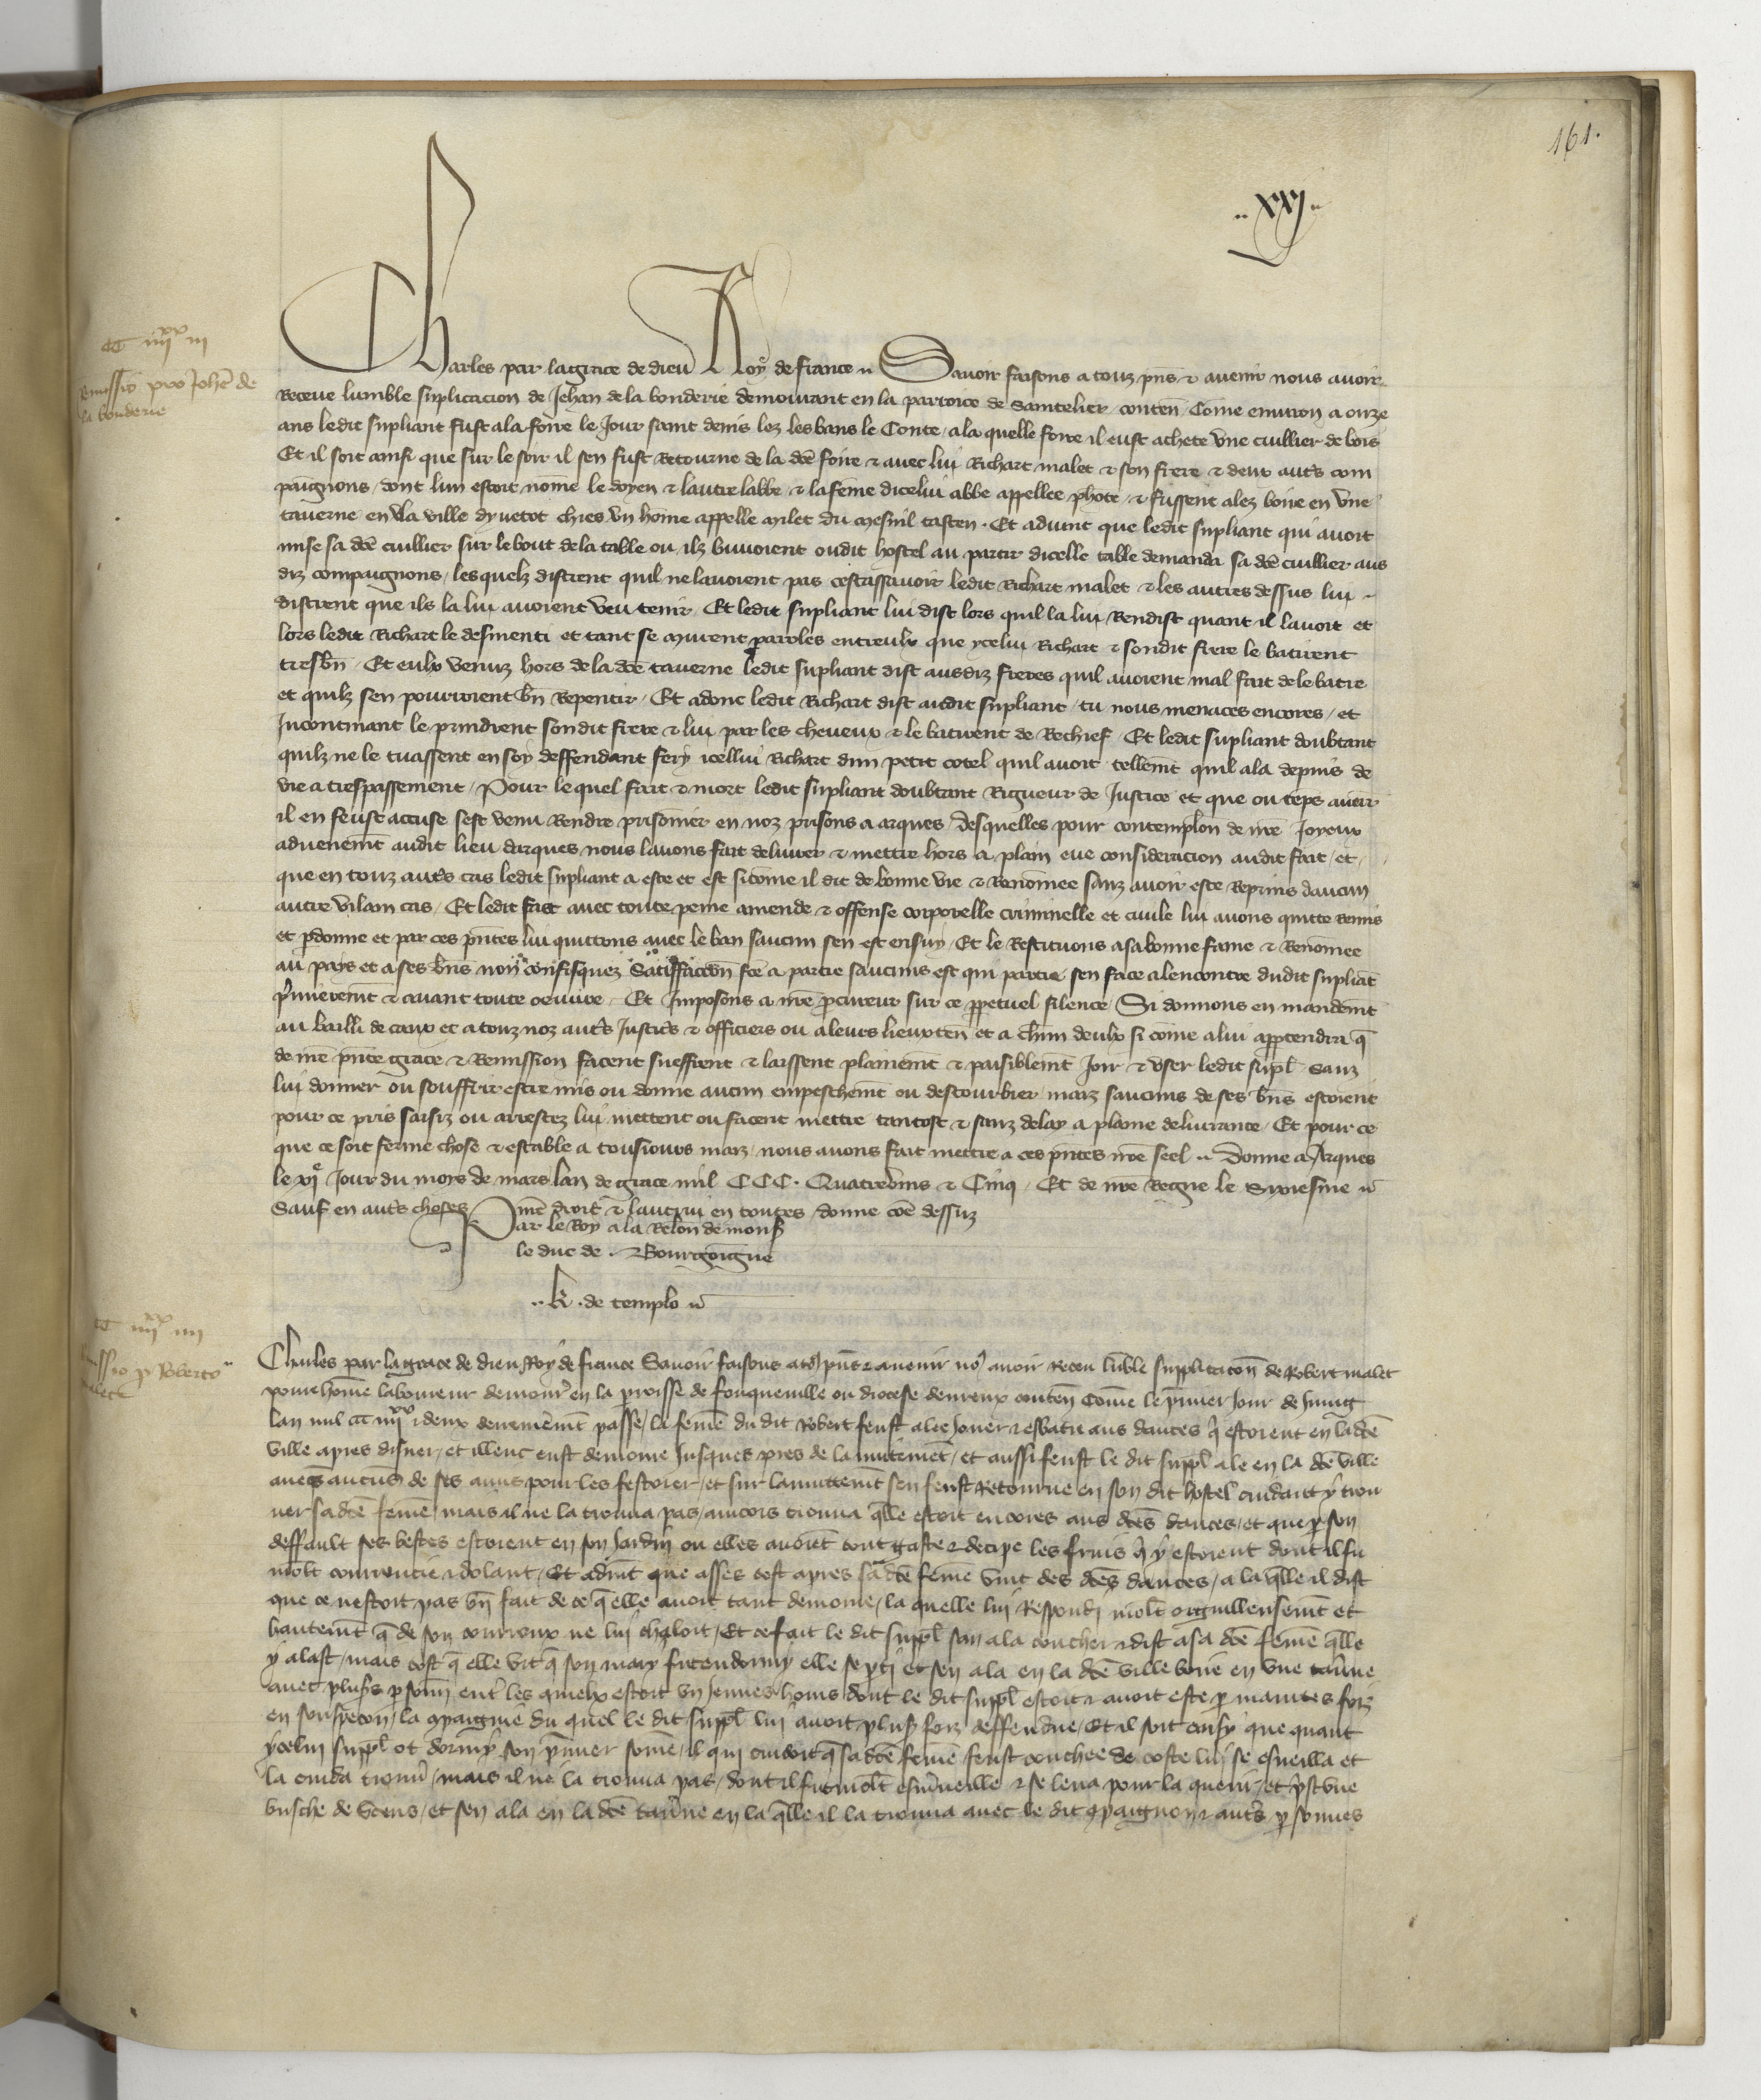 161.
.. xxj ..
CC iiijxx iij
Remissio pro Johe de
la bonderie
Charles par la grace de dieu Roy de france .. Savoir faisons a touz pns & avenir nous avoir
Receue lumble suplicacion de Jehan de la bonderie demourant en la parroice de saintelier conten Come environ a onze
ans ledit supliant fust ala foire le Jour saint denis lez les bans le Conte / ala quelle foire il eust achete une cuillier de bois
Et il soit ainsi que sur le soir il sen fust Retourne de la dce foire & avec lui Richart malet & son frere & deux auts com
paignons / dont lun estoit nome le doyen & lautre labbe & la feme dicelui abbe appellee phote / & fussent alez boire en une
taverne en la ville dyvetot chies un home appelle milet du mesnil tasten . Et advint que ledit supliant qui avoit
mise sa dce cuillier sur le bout de la table ou ilz buvoient oudit hostel au partir dicelle table demanda sa dce cuillier aus
diz compaignons / lesquelz distrent quil ne lavoient pas cestassavoir ledit Richart malet & les autres dessus lui
distrent que ils la lui avoient veu tenir / Et ledit supliant lui dist lors quil la lui Rendist quant il lavoit et
lors ledit Richart le desmenti et tant se murent paroles entreulx que ycelui Richart & sondit frere le batirent
tresbn / Et eulx venuz hors de la dce taverne ledit supliant dist ausdiz freres quil avoient mal fait de le batre
et quilz sen pourroient bn Repentir / Et adonc ledit Richart dist audit supliant / tu nous menaces encores / et
Incontinant le prindrent sondit frere & lui par les cheveux & le batirent de Rechief / Et ledit supliant doubtant
quilz ne le tuassent en soy deffendant fery icellui Richart dun petit cotel quil avoit tellemt quil ala depuis de
vie a trespassement / Pour le quel fait & mort ledit supliant doubtant Rigueur de Justice et que ou teps avenir
il en feust accuse sest venu Rendre prisonier en noz prisons a arques / desquelles pour contemplon de nre Joyeux
advenemt audit lieu darques nous lavons fait delivrer & mettre hors a plain eue consideracion audit fait / et
que en touz auts cas ledit supliant a este et est sicome il dit de bonne vie & Renomee sanz avoir este Reprins daucun
autre vilain cas / Et ledit fait avec toute peine amende & offense corporelle criminelle et civile lui avons quitte Remis
et pdonne et par ces pntes lui quittons avec le ban saucun sen est ensuy / Et le Restituons a sa bonne fame & Renomee
au pays et a ses bns non confisquez Satisfacion fce a partie saucuns est qui partie sen face alencontre dudit supliat
pmieremt & avant toute oeuvre / Et Imposons a nre pcureur sur ce ppetuel silence Si donnons en mandemt
au bailli de caux et a touz noz auts Justics & officiers ou a leurs lieuxten et a chun deulx si come a lui apptendra q
de nre pnte grace & Remission facent sueffrent & laissent plainemt & paisiblemt Joir & user ledit supl / Sanz
lui donner ou souffrir estre mis ou donne aucun empeschemt ou destourbier / maiz saucuns de ses bns estoient
pour ce pris saisiz ou arrestez lui mettent ou facent mettre tantost & sanz delay a plaine delivrance / Et pour ce
que ce soit ferme chose & estable a tousiours maiz / nous avons fait mettre a ces pntes nre seel .. Donne a Arques
le xje Jour du moys de mars lan de grace mil CCC . Quatrevins & Cinq / Et de nre Regne le Sixiesme ..
Sauf en auts choses nre droit & lautrui en toutes / donne coe dessuz
Par le Roy a la Relon de mons
le duc de . Bourgoingne
.. k . de templo ..
CC iiijxx iiij
Remissio p Roberto
malet
Charles par la grace de dieu Roy de france Savoir faisons a to9 pns & avenir no9 avoir Receu lumble supplicacon de Robert malet
povre home laboureur demour en la proisse de fouqueville ou diocese devreux conten Come le pmier Jour de Juing
lan mil CCC iiijxx & deux derrenemt passe / la feme du dit Robert feust alee Jouer & esbatre aus dances q estoient en ladce
ville apres disner / et illenc eust demoure Jusques pres de la nuitemet / et aussi feust le dit suppl ale en la dce ville
avec aucus de ses amis pour les festoier / et sur lanuittemt sen feust Retourne en son dit hostel cuidant y trou
ver sa dce feme / mais il ne la trouva pas / aincois trouva qlle estoit encores aus dces dances / et que p son
deffault ses bestes estoient en son Jardin ou elles avoiet tout gaste & decipe les fruis q y estoient dont il fu
molt courroucie & dolant / Et advint que asses tost apres sa dce feme vint des dces dances / a la qlle il dist
que ce nestoit pas bn fait de ce q elle avoit tant demoure / la quelle lui Respondi molt orguilleusemt et
hautemt q de son courroux ne lui chaloit / Et ce fait le dit suppl san ala coucher & dist a sa dce feme qlle
y alast / mais tost q elle vit q son mary fut endormy elle se pti et sen ala en la dce ville boire en une tavne
avec plus psonn ent les quielx estoit un Jeunes homs dont le dit suppl estoit & avoit este p maintes foiz
en souspecon / la 9paignie du quel le dit suppl lui avoit plus foiz deffendue / Et il soit ainsy que quant
ycelui suppl ot dormy son pmier some / il qui cuidoit q sa dce feme feust couchee de coste lui se esveilla et
la cuida trouv / mais il ne la trouva pas / dont il fut molt esmveille & se leva pour la querir / et pst une
busche de bois / et sen ala en la dce tavne en la qlle il la trouva avec le dit 9paignon & auts psonnes